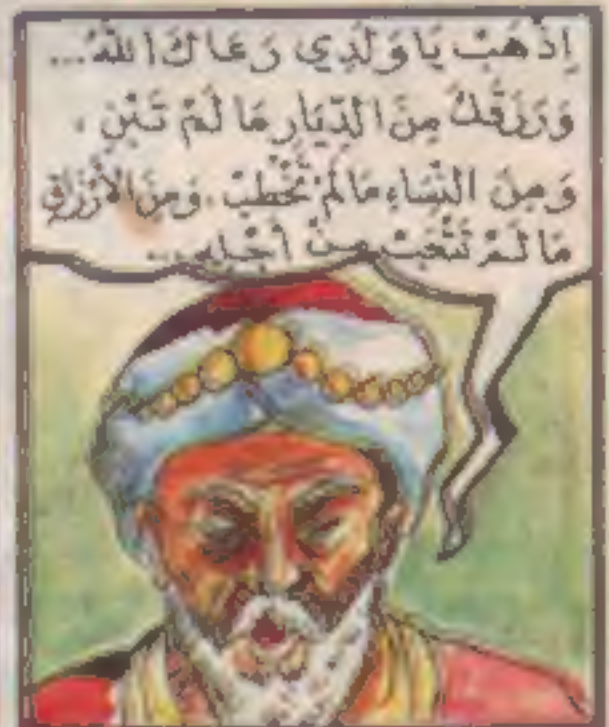 إِذْهَبْ يَا وَلَدِي رَعَاكَ اللهُ...
وَرَزَقَكَ مِنَ الدِّيَارِ مَا لَمْ تَبْنِ ،
وَمِنَ النِّسَاءِ مَا لَمْ تَخْطُبْ . وَمِنَ الْأَرْزَاقِ
مَا لَمْ تَتْعَبْ مِنْ أَجْلِهِ...